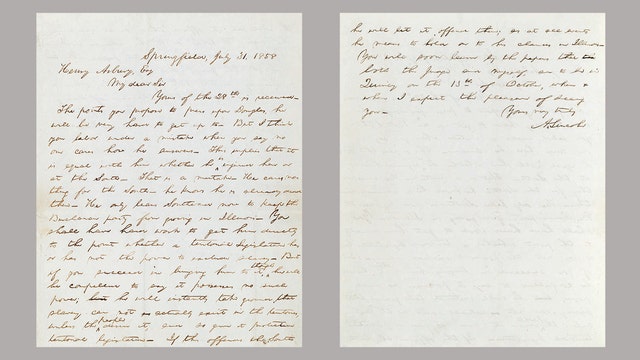 Springfield, July 31. 1858
Henry Asbury, Esq
My dear Sir
Yours of the 28th is received.
The points you propose to press upon Douglas, he
will be very hard to get up to. But I think
you labor under a mistake when you say no
one cares how he answers. This implies that it
is equal with him whether he is injured here or
at the South. That is a mistake. He cares noth-
ing for the South— he knows he is already dead
there. He only leans Southward now to keep the
Buchanan party from growing in Illinois. You
shall have hard work to get him directly
to the point whether a territorial Legislature has
or has not the power to exclude slavery. But
if you succeed in bringing him to it, though he will
be compelled to say it possesses no such
power; he will instantly take ground that
slavery can not actually exist in the territories,
unless the people desire it, and so give it protective
territorial legislation. If this offends the South
he will let it offend them; as at all events
he means to hold on to his chances in Illinois.
You will soon learn by the papers that
both the Judge and myself, are to be in
Quincy on the 13th of October, when &
where I expect the pleasure of seeing
you. Yours very truly
A. Lincoln